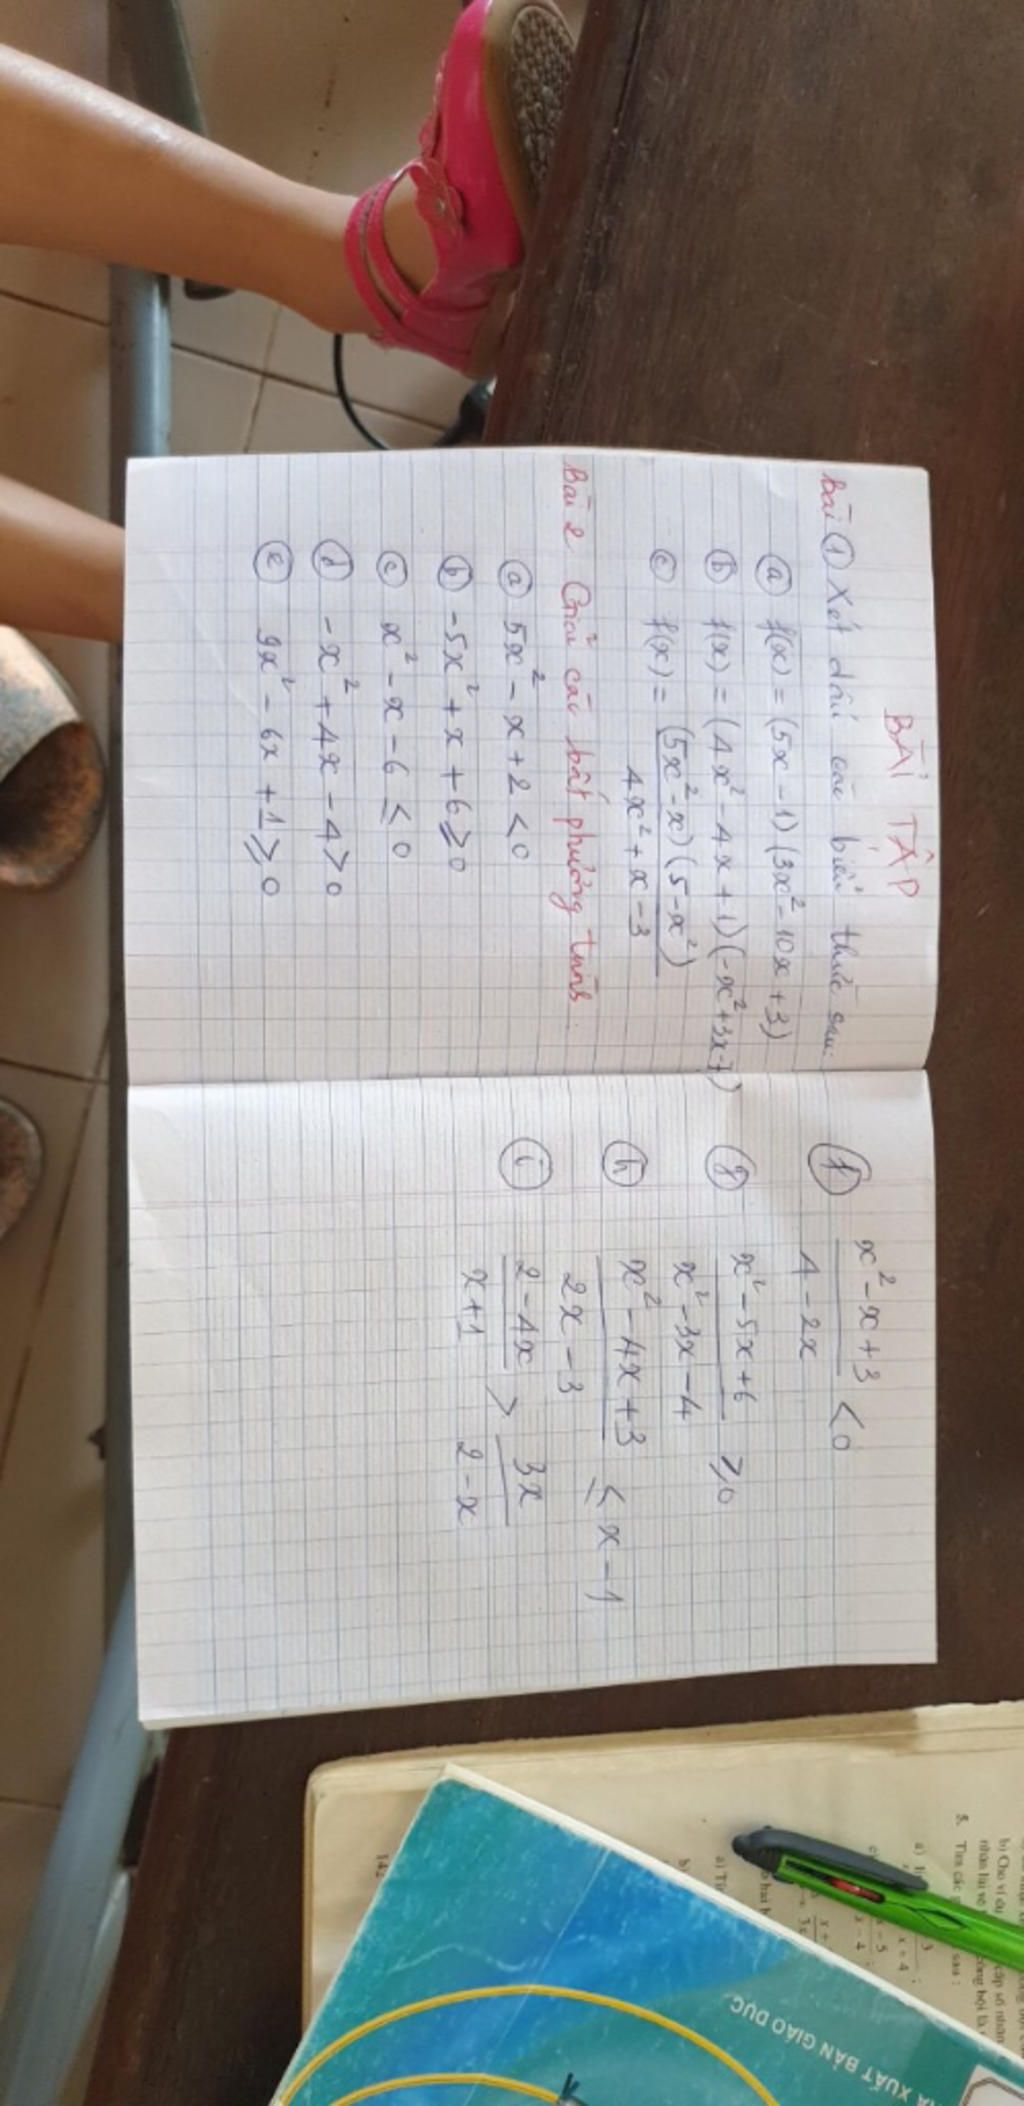 BÀI TẬP
Bài ① Xét dấu các biểu thức sau:
ⓐ f(x) = (5x - 1)(3x² - 10x + 3)
ⓑ f(x) = (4x² - 4x + 1)(-x² + 3x - 7)
ⓒ f(x) = (5x² - x)(5 - x²)
4x² + x - 3
Bài 2 Giải các bất phương trình:
ⓐ 5x² - x + 2 < 0
ⓑ -5x² + x + 6 ≥ 0
ⓒ x² - x - 6 ≤ 0
ⓓ -x² + 4x - 4 > 0
ⓔ 9x² - 6x + 1 ≥ 0
ⓕ x² - x + 3 < 0
4 - 2x
ⓖ x² - 5x + 6 ≥ 0
x² - 3x - 4
ⓗ x² - 4x + 3 ≤ x - 1
2x - 3
ⓘ 2 - 4x > 3x
x + 1 2 - x
5. Tìm các
142
XUẤT BẢN GIÁO DỤC